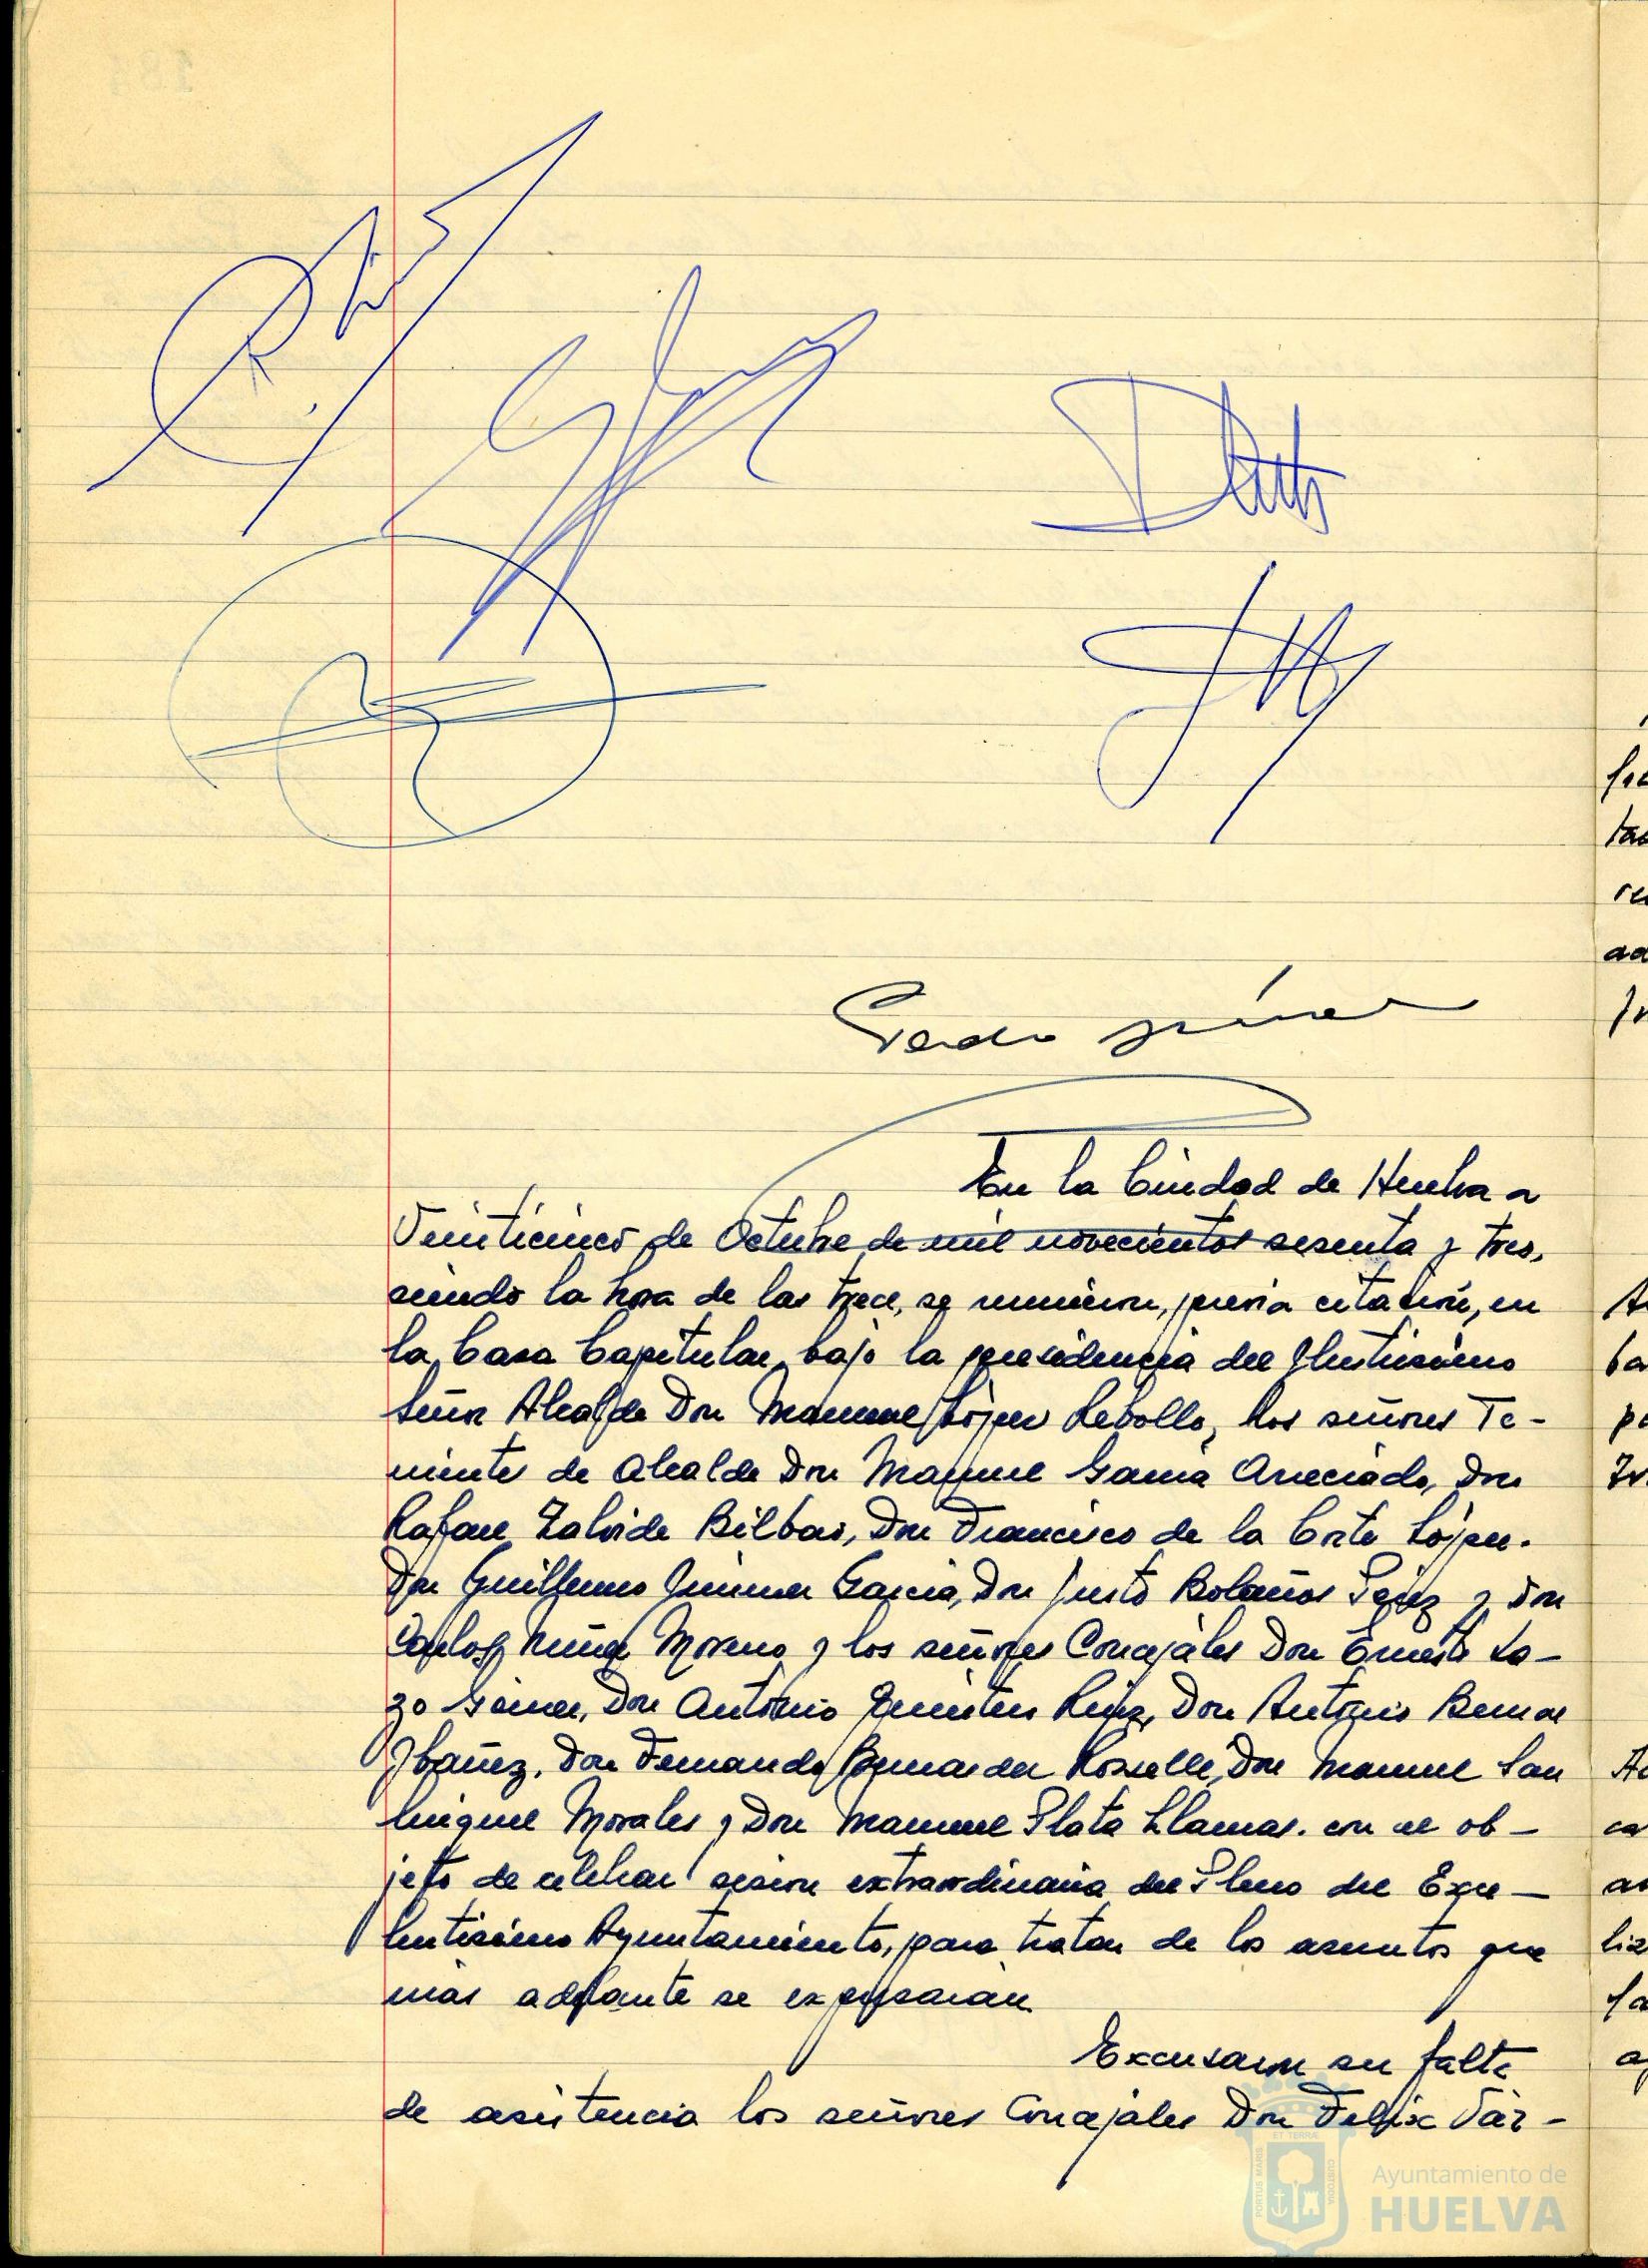 Pedro Gómez
En la Ciudad de Huelva a
Veinticinco de Octubre de mil novecientos sesenta y tres,
siendo la hora de las trece, se reunieron, previa citación, en
la Casa Capitular, bajo la presidencia del Ilustrísimo
Señor Alcalde Don Manuel López Rebollo, los señores Te-
niente de Alcalde Don Manuel García Areciado, Don
Rafael Zalvide Bilbao, Don Francisco de la Corte López.
Don Guillermo Jimenez García, Don Justo Bolaños Perez y Don
Carlos Nuñez Moreno y los señores Concejales Don Ernesto La-
zo Gómez, Don Antonio Quintero Ruiz, Don Antonio Bernal
Ibañez, Don Fernando Bernardez Rosselle, Don Manuel San
Miguel Morales y Don Manuel Plata Llamas. con el ob-
jeto de celebrar sesion extraordinaria del Pleno del Exce-
lentísimo Ayuntamiento, para tratar de los asuntos que
más adelante se expresarán
Excusaron su falta
de asistencia los señores Concejales Don Felix Váz-
PORTUS MARIS
ET TERRA
CUSTODIA
Ayuntamiento de
HUELVA